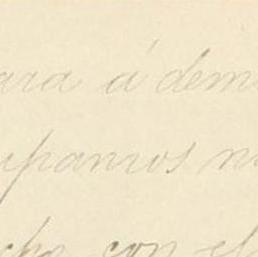 ara á dem
upamos n
cho con el